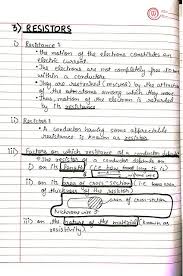 3) RESISTORS
i) Resistance :
• the motion of the electrons constitutes an
electric current
• The electrons are not completely free to
within a conductor
• They are restrained (rescued) by the attraction
of the atoms among which they
• Thus, motion of the electrons is retarded
by its resistance
ii) Resistor :
A conductor having some appreciable
resistance is known as resistor
iii) Factors on which resistance of a conductor depends
• The resistor of a conductor depends on
i) on its length
ii) on its area of cross-section
thickness of the
area of cross-section
Nichrome wire
iii) on the nature of the material (known as
resistivity)